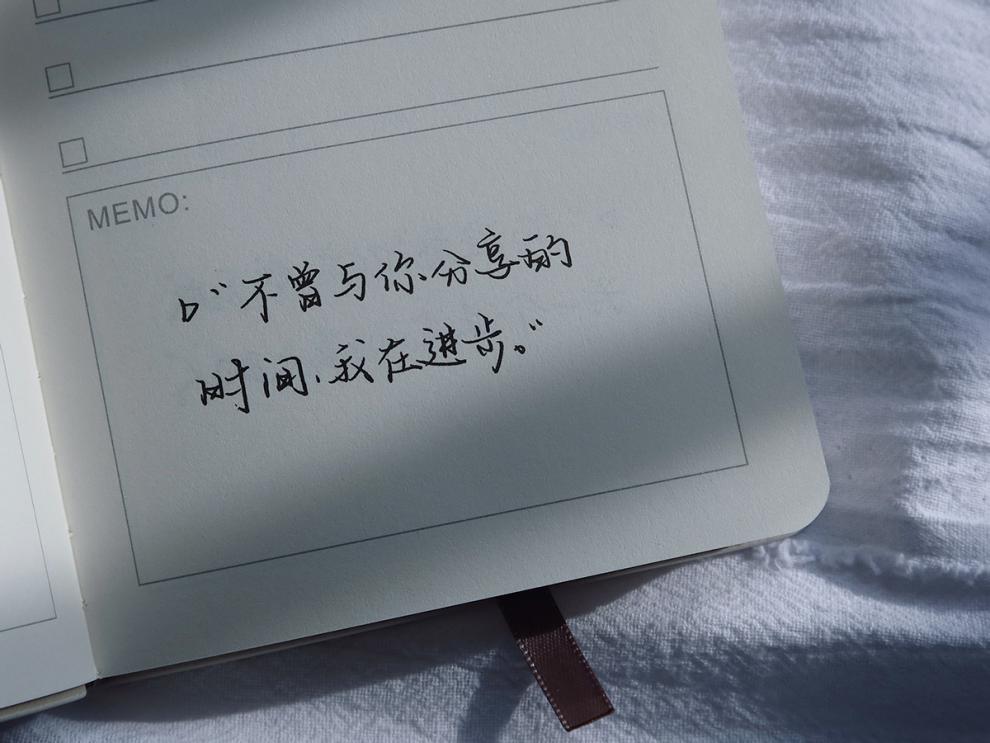 MEMO:
▷“不曾与你分享的
时间,我在进步。”